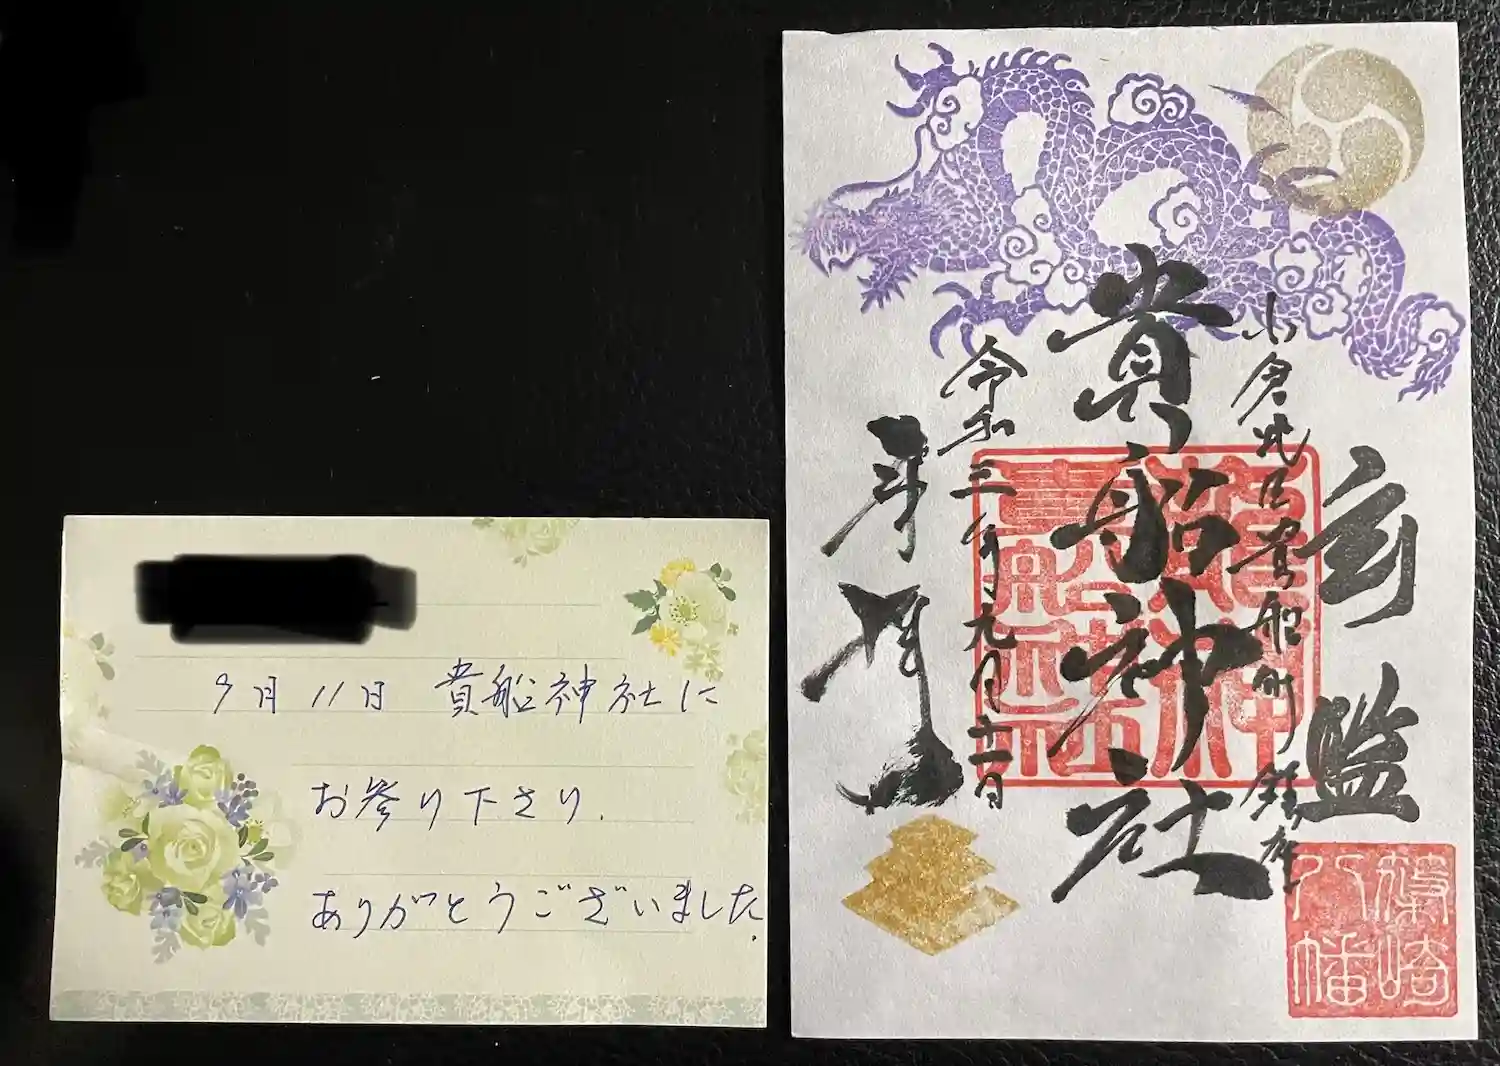 9月11日 貴船神社に
お参り下さり.
ありがとうございました.
兼監
小倉北区貴船町鎮座
貴船神社
令和三年九月十一日
奉拝
篠崎
八幡